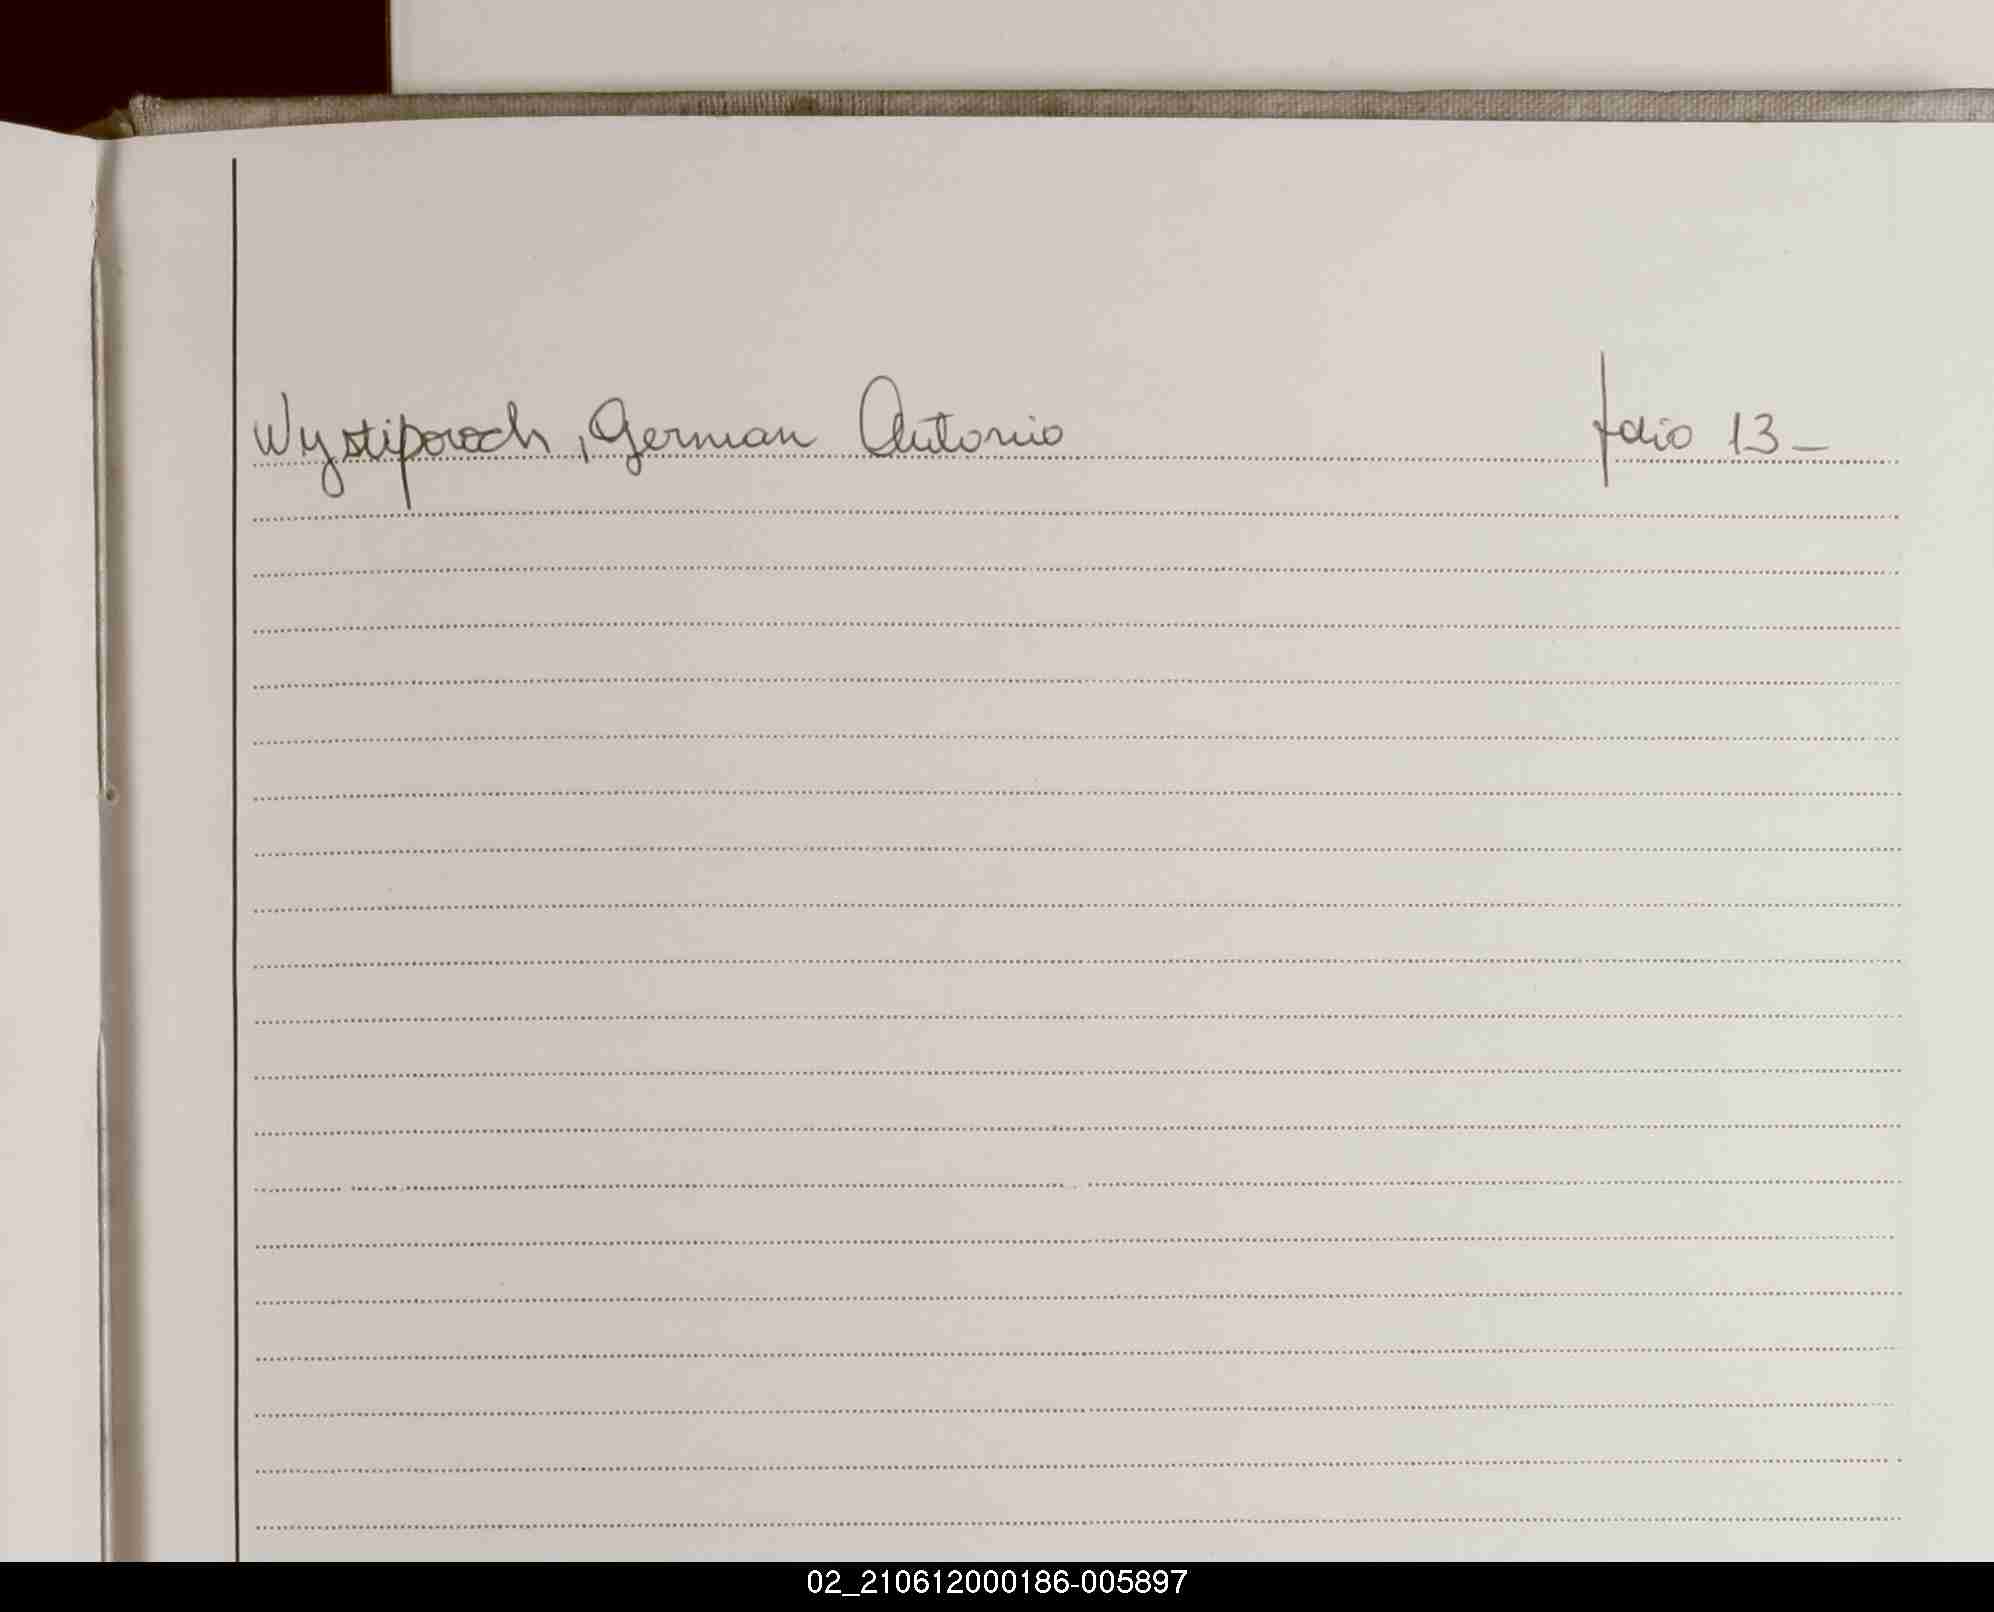 Wystiporoch, German Antonio folio 13 -
02_210612000186-005897